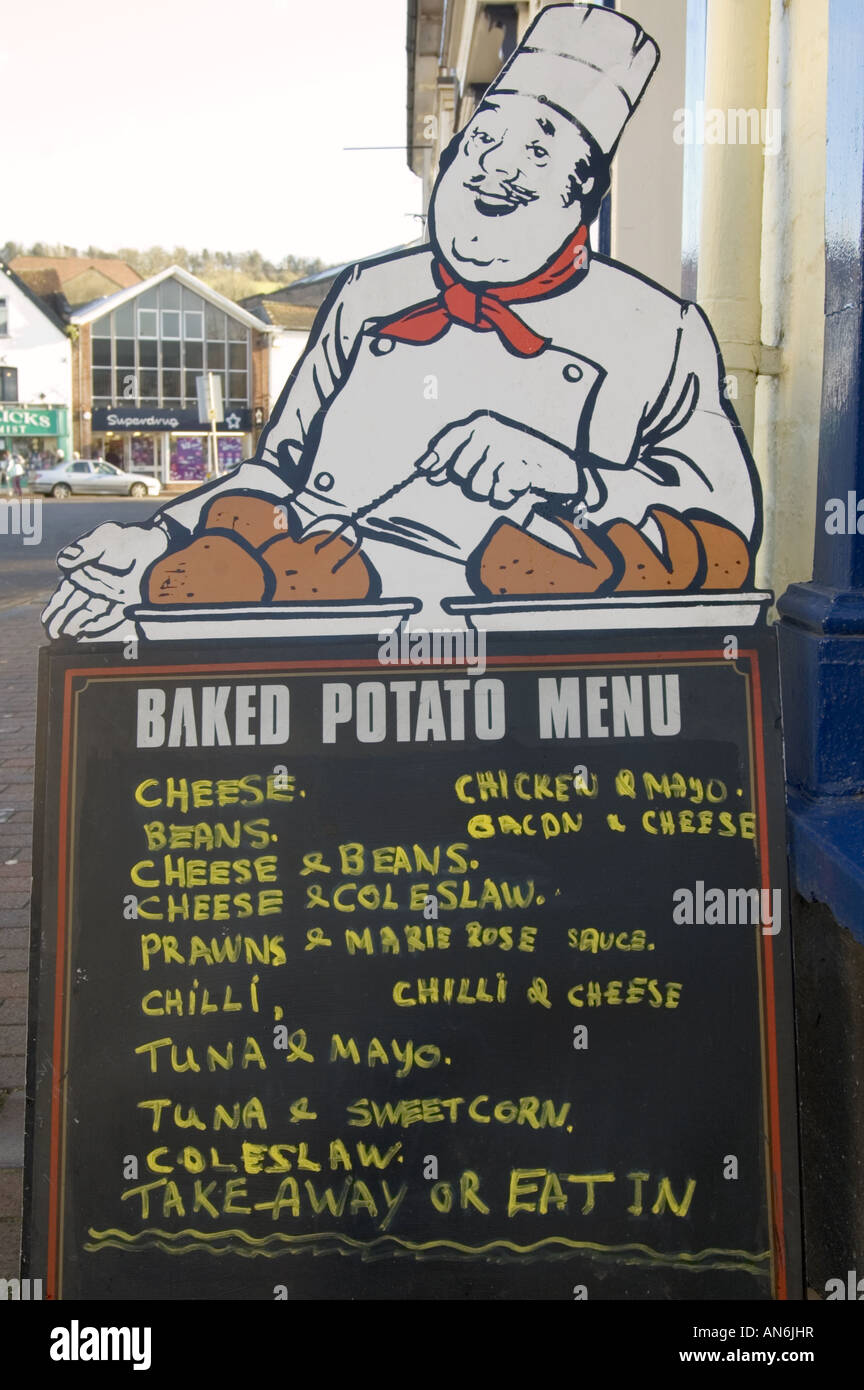 Superdrug
ICKS
IST
BAKED POTATO MENU
CHEESE. CHICKEN & MAYO.
BEANS. BACON & CHEESE
CHEESE & BEANS.
CHEESE & COLESLAW.
PRAWNS & MARIE ROSE SAUCE.
CHILLI, CHILLI & CHEESE
TUNA & MAYO.
TUNA & SWEETCORN.
COLESLAW.
TAKE-AWAY OR EAT IN
alamy
alamy stock photo
AN6JHR
www.alamy.com